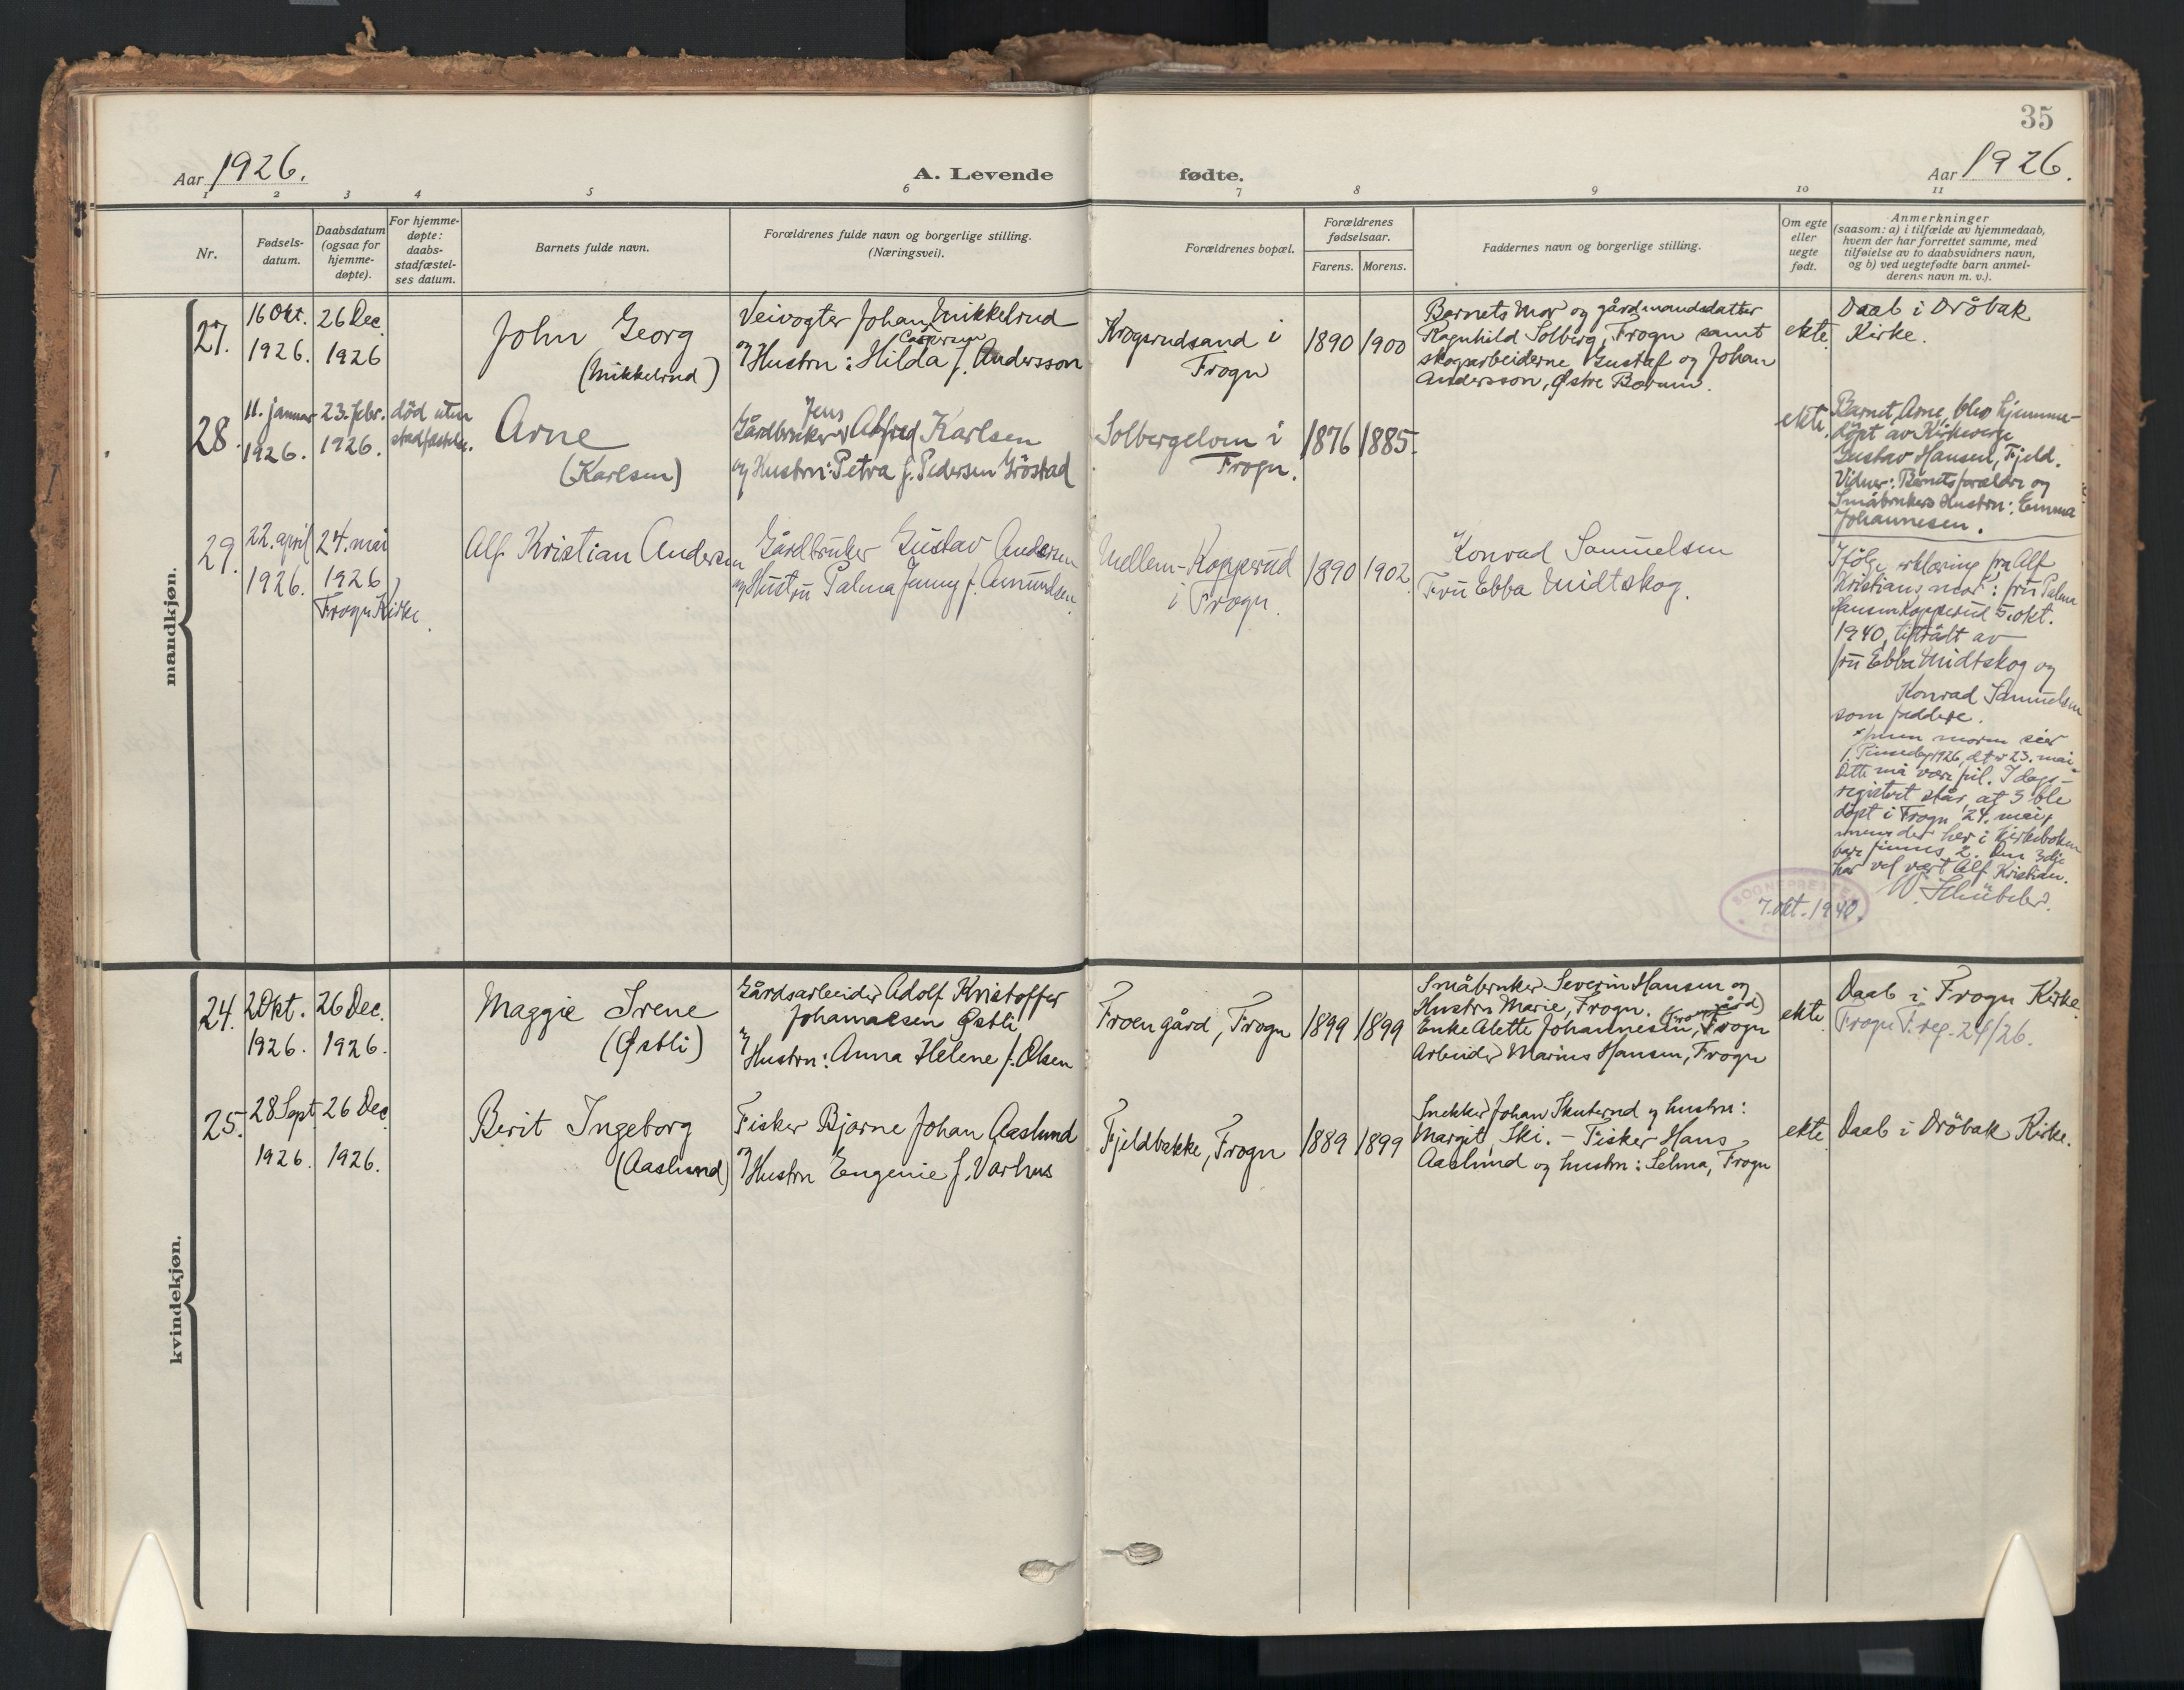 35
Aar 1926.
A. Levende fødte.
Aar 1926.
1 2 3 4 5 6 7 8 9 10 11
Nr.
Fødsels-
datum.
Daabsdatum
(ogsaa for
hjemme-
døpte).
For hjemme-
døpte:
daabs-
stadfæstel-
ses datum.
Barnets fulde navn.
Forældrenes fulde navn og borgerlige stilling.
(Næringsvei).
Forældrenes bopæl.
Forældrenes
fødselsaar.
Farens. Morens.
Faddernes navn og borgerlige stilling.
Om egte
eller
uegte
født.
Anmerkninger
(saasom: a) i tilfælde av hjemmedaab,
hvem der har forrettet samme, med
tilføielse av to daabsvidners navn,
og b) ved uegtefødte barn anmel-
derens navn m. v.).
mandkjøn.
27.
16 Okt.
1926.
26 Dec.
1926
John Georg
(Mikkelrud)
Veivogter Johan Mikkelrud
og Hustru: Hilda f. Andersson
Krogsrudsand i
Frogn
1890 1900
Barnets Mor og gårdmandsdatter
Ragnhild Solberg, Frogn samt
skogsarbeiderne Gustaf og Johan
Andersson, Østre Bærum.
ekte.
Daab i Drøbak
Kirke.
28.
11. januar
1926.
23. febr.
1926.
død uten
stadfæstelse.
Arne
(Karlsen)
Jens
Gårdbruker Alfred Karlsen
og Hustru: Petra f. Pedersen Grøstad
Solbergelom i
Frogn.
1876 1885.
ekte.
Barnet, Arne, blev hjemme-
døpt av Kirkeverge
Gustav Hansen, Fjeld.
Vidner: Barnets forældre og
Småbrukers Hustru: Emma
Johannesen.
29.
22. april
1926.
24. mai
1926
Frogn Kirke.
Alf Kristian Andersen
Gårdbruker Gustav Andersen
og Hustru Palma Jenny f. Amundsen.
Mellem-Kopperud
i Frogn.
1890 1902
Konrad Samuelsen
Fru Ebba Midtskog.
Ifølge erklæring fra Alf
Kristians mor: fru Palma
Hansen Kopperud 5. okt.
1940, tiltrådt av
fru Ebba Midtskog og
Konrad Samuelsen
som faddere.
men moren sier
1. Pinsedag 1926, det er 23. mai.
Dette må være feil. I dags-
registret står, at 3 ble
døpt i Frogn 24. mai,
mens der her i Kirkeboken
bare finnes 2. Den 3dje
har vel vært Alf Kristian.
W. Schübeler.
7. okt. 1940.
kvindekjøn.
24.
2 Okt.
1926.
26 Dec.
1926.
Maggie Irene
(Østli)
Gårdsarbeider Adolf Kristoffer
Johannesen Østli
og Hustru: Anna Helene f. Olsen
Froen gård, Frogn
1899 1899
Småbruker Severin Hansen og
Hustru Marie, Frogn.
Enke Alette Johannesen, Frogn
Arbeider Marius Hansen, Frogn
ekte
Daab i Frogn Kirke.
Frogn F. reg. 24/26.
25.
28 Sept.
1926.
26 Dec.
1926.
Berit Ingeborg
(Aaslund)
Fisker Bjarne Johan Aaslund
og Hustru Eugenie f. Varhus
Fjeldbakke, Frogn
1889 1899
Snekker Johan Skuterud og hustru:
Margit, Ski. – Fisker Hans
Aaslund og hustru: Selma, Frogn
ekte
Daab i Drøbak Kirke.